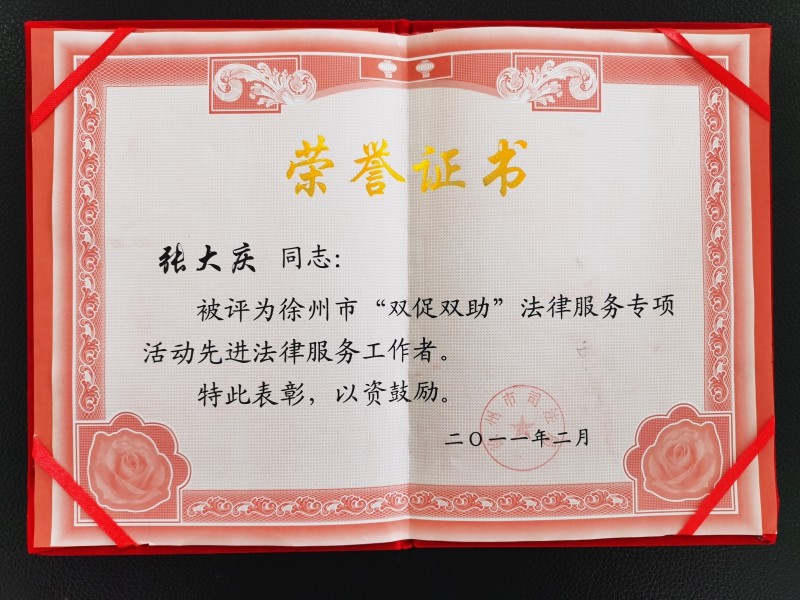 荣誉证书
张大庆 同志：
被评为徐州市“双促双助”法律服务专项
活动先进法律服务工作者。
特此表彰，以资鼓励。
徐州市司法局
二〇一一年二月